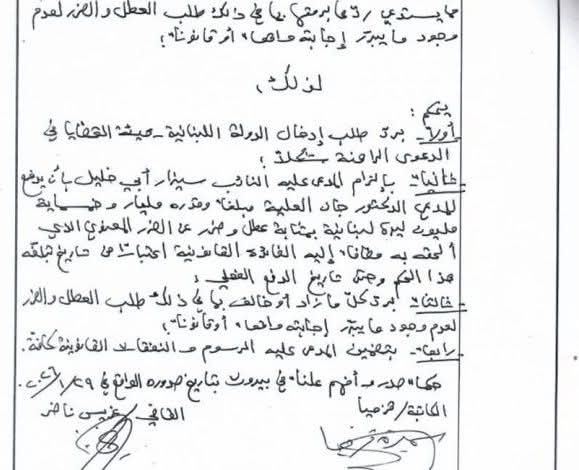 مما يستدعي ردّها برمتها بما في ذلك طلب العطل والضرر لعدم
وجود ما يبرّر إجابته واقعاً أو قانوناً؛
لذلك،
يحكم:
أولاً- بردّ طلب إدخال الدولة اللبنانية - هيئة القضايا في
الدعوى الراهنة شكلاً؛
ثانياً- بإلزام المدعى عليه النائب سيزار أبي خليل بأن يدفع
للمدعي الدكتور جان العلية مبلغاً وقدره مليار وخمسماية
مليون ليرة لبنانية بمثابة عطل وضرر عن الضرر المعنوي الذي
ألحقه به مضافاً إليه الفائدة القانونية اعتباراً من تاريخ تبلّغه
هذا الحكم وحتى تاريخ الدفع الفعلي؛
ثالثاً- بردّ كلّ ما زاد أو خالف بما في ذلك طلب العطل والضرر
لعدم وجود ما يبرّر إجابته واقعاً أو قانوناً؛
رابعاً- بتضمين المدعى عليه الرسوم والنفقات القانونية كافّة.
حكماً صدر وأفهم علناً في بيروت بتاريخ صدوره الواقع في ٢٩/١/٢٠٢٦.
الكاتبة/ القاضي/